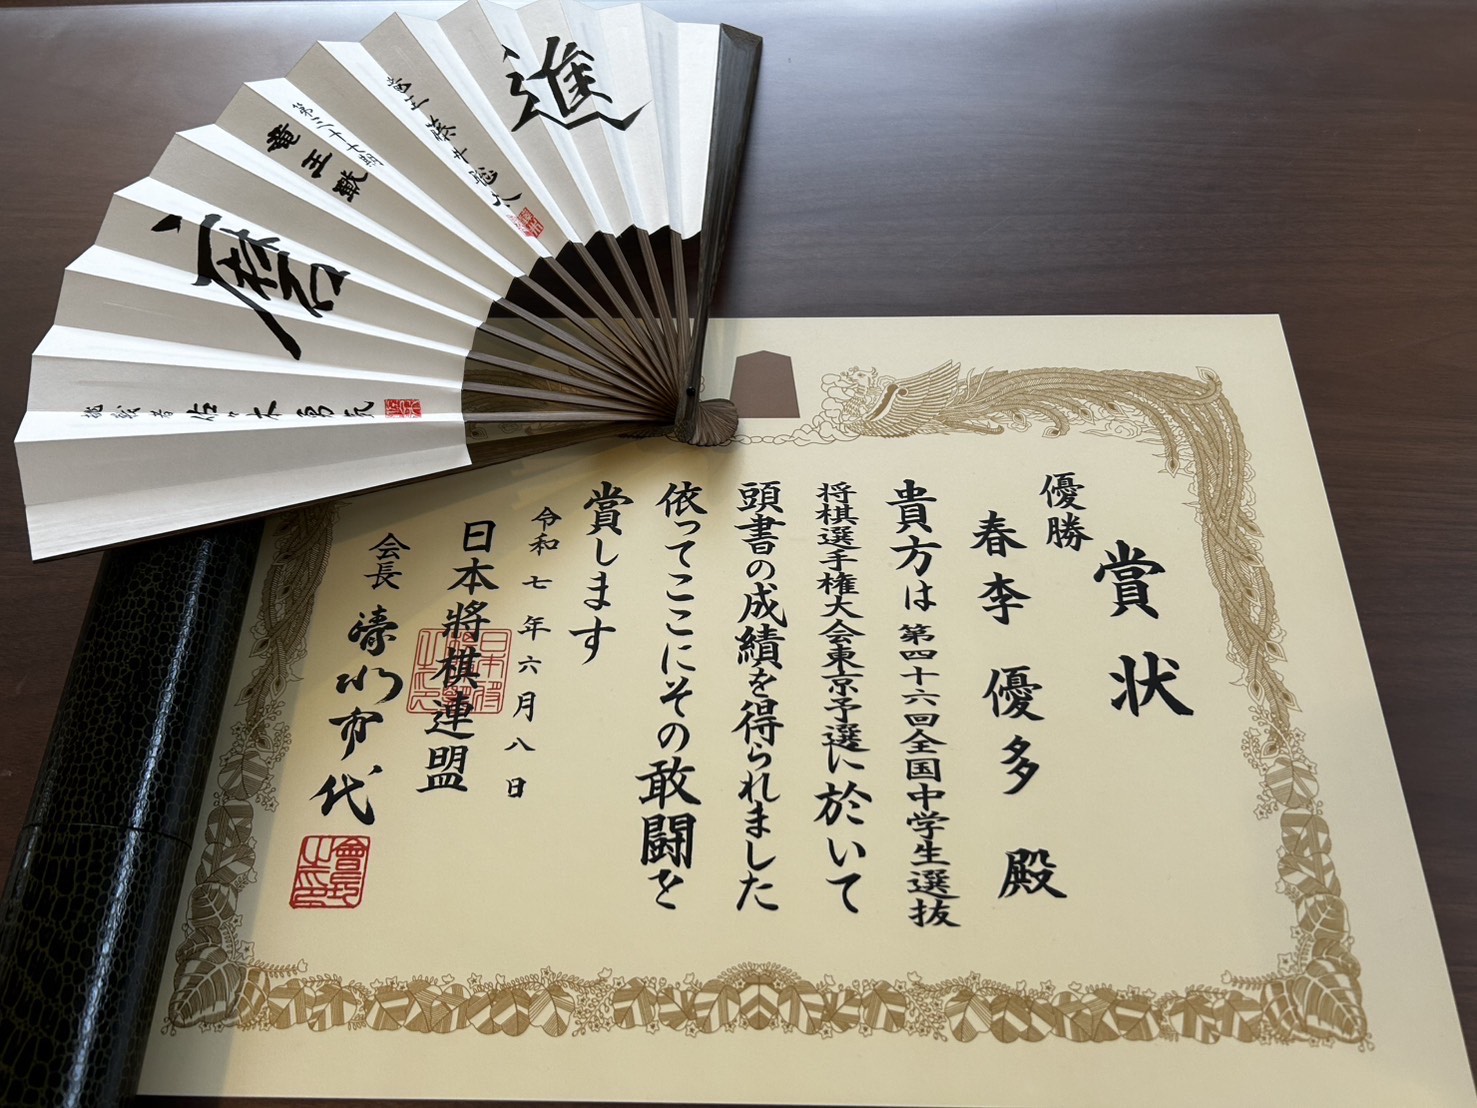 進
竜王 藤井聡太
第三十七期
竜王戦
磨
挑戦者 佐々木勇気
賞状
優勝
春李優多殿
貴方は第四十六回全国中学生選抜
将棋選手権大会東京予選に於いて
頭書の成績を得られました
依ってここにその敢闘を
賞します
令和七年六月八日
日本將棋連盟
会長 清水市代
會長之印